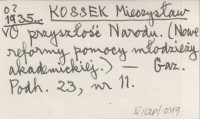 0?
1935.. KOSSEK Mieczysław
O przyszłość Narodu. (Nowe
reformy pomocy młodzieży
akademickiej.) — Gaz.
Podh. 23, nr 11.